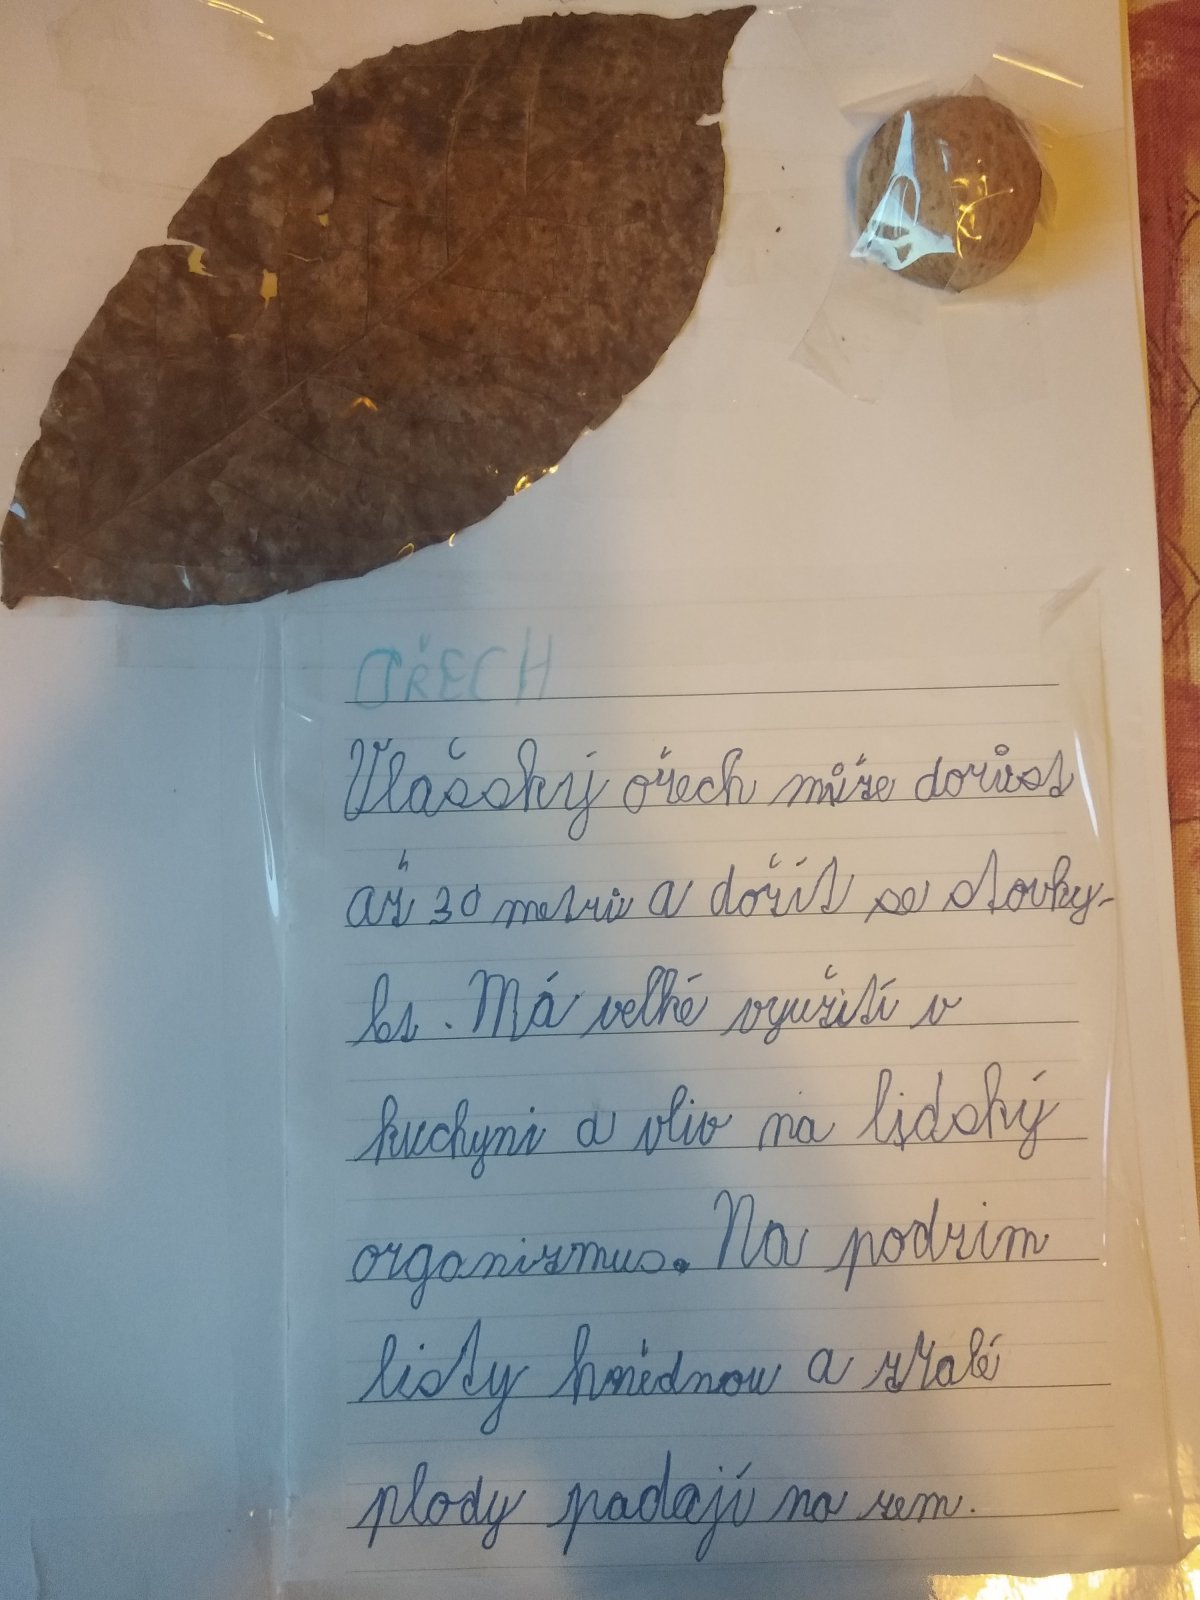 OŘECH
Vlašský ořech může dorůst
až 30 metrů a dožít se stovky
let. Má velké využití v
kuchyni a vliv na lidský
organizmus. Na podzim
listy hnědnou a zralé
plody padají na zem.